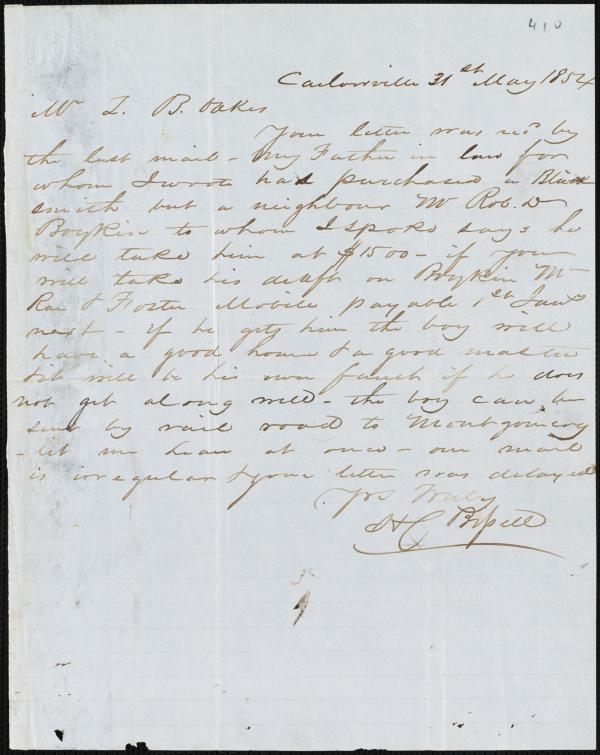 410
Carlowville 31st May 1854
Mr Z. B. Oakes
Your letter was recd by
the last mail - My Father in law for
whom I wrote had purchased a Black
smith but a neighbour Mr Rob. D
Boykin to whom I spoke says he
will take him at $1500 - if you
will take his draft on Boykin Mc
Rae & Foster Mobile payable 1st Jany
next - if he gets him the boy will
have a good home & a good master
& it will be his own fault if he does
not get along well - the boy can be
sent by rail road to Montgomery
- let me hear at once - our mail
is irregular & your letter was delayed
Yrs Truly